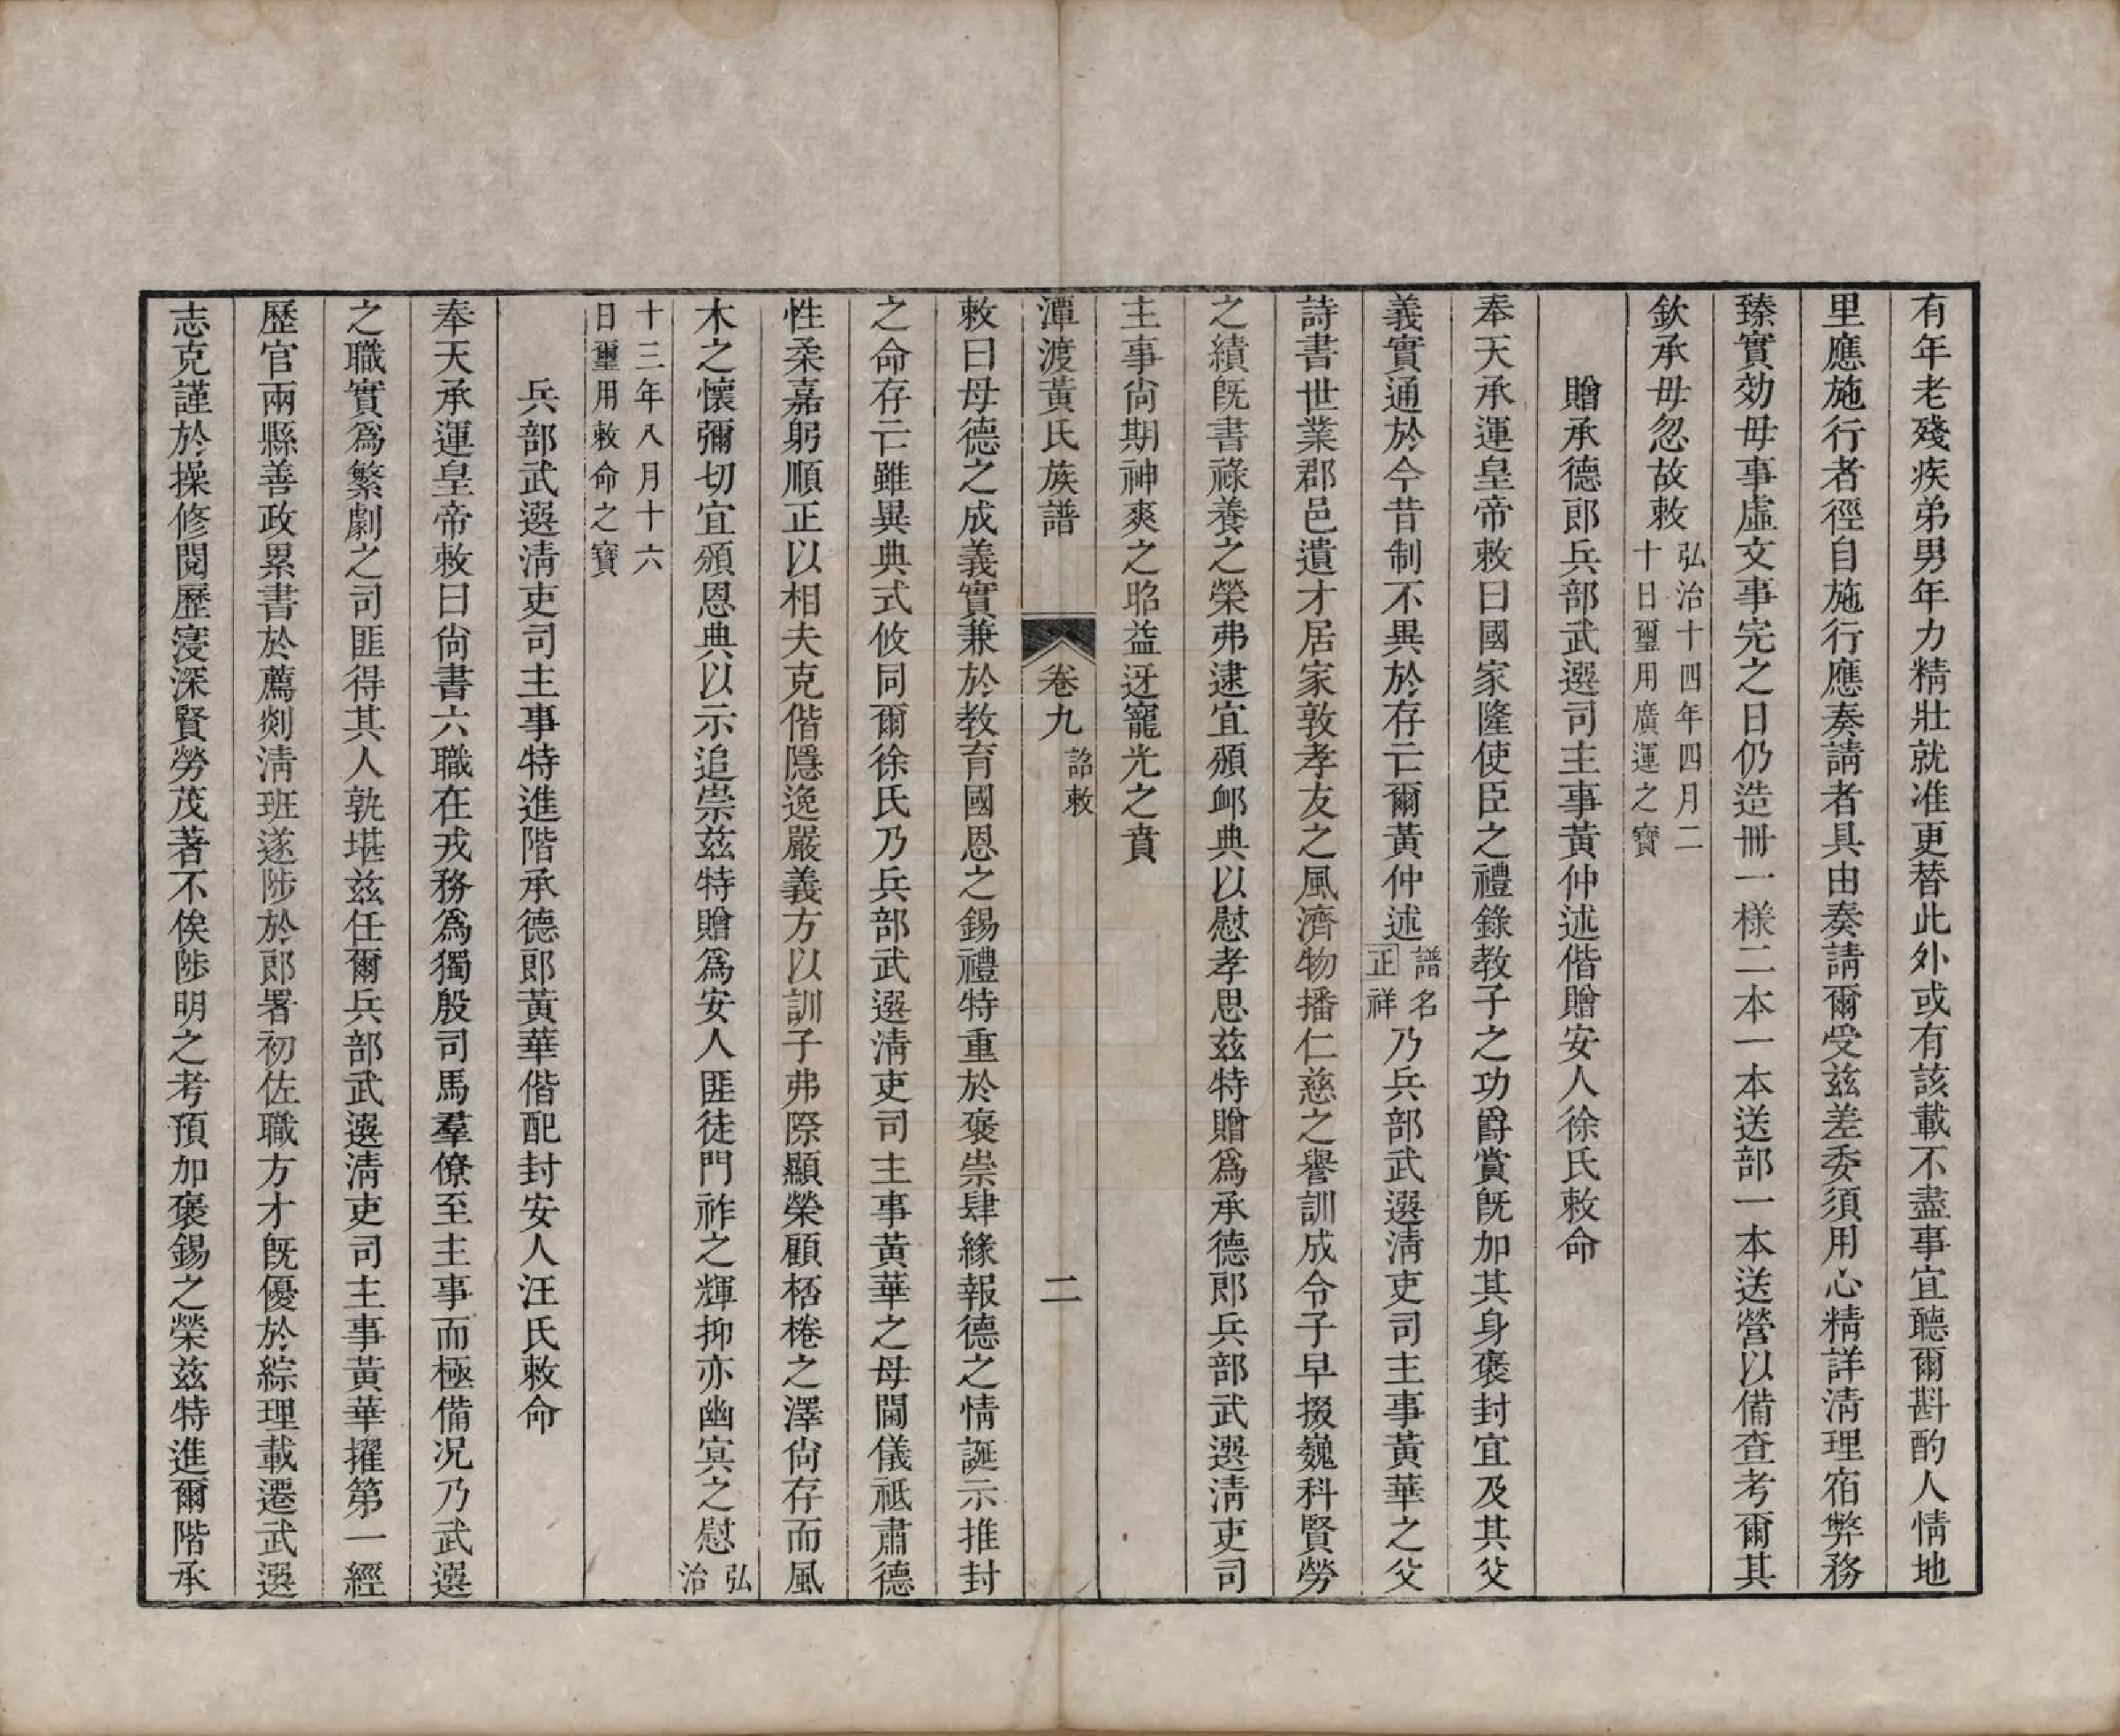 有年老殘疾弟男年力精壯就准更替此外或有該載不盡事宜聽爾斟酌人情地
里應施行者徑自施行應奏請者具由奏請爾受茲差委須用心精詳清理宿弊務
臻實効毋事虛文事完之日仍造冊一樣二本一本送部一本送營以備查考爾其
欽承毋忽故敕弘治十四年四月二
十日璽用廣運之寶
贈承德郎兵部武選司主事黃仲述偕贈安人徐氏敕命
奉天承運皇帝敕曰國家隆使臣之禮錄教子之功爵賞旣加其身褒封宜及其父
義實通於今昔制不異於存亡爾黃仲述譜名
正祥乃兵部武選淸吏司主事黃華之父
詩書世業郡邑遺才居家敦孝友之風濟物播仁慈之譽訓成令子早掇巍科賢勞
之績旣書祿養之榮弗逮宜頒卹典以慰孝思茲特贈爲承德郎兵部武選淸吏司
主事尙期神爽之昭益迓寵光之賁
潭渡黃氏族譜 卷九 詔敕 二
敕曰母德之成義實兼於教育國恩之錫禮特重於褒崇肆緣報德之情誕示推封
之命存亡雖異典式攸同爾徐氏乃兵部武選淸吏司主事黃華之母閫儀祗肅德
性柔嘉躬順正以相夫克偕隱逸嚴義方以訓子弗際顯榮顧桮棬之澤尙存而風
木之懷彌切宜頒恩典以示追崇茲特贈爲安人匪徒門祚之輝抑亦幽冥之慰弘
治
十三年八月十六
日璽用敕命之寶
兵部武選淸吏司主事特進階承德郎黃華偕配封安人汪氏敕命
奉天承運皇帝敕曰尙書六職在戎務爲獨殷司馬羣僚至主事而極備况乃武選
之職實爲繁劇之司匪得其人孰堪茲任爾兵部武選淸吏司主事黃華擢第一經
歷官兩縣善政累書於薦剡淸班遂陟於郎署初佐職方才旣優於綜理載遷武選
志克謹於操修閱歷寖深賢勞茂著不俟陟明之考預加褒錫之榮茲特進爾階承